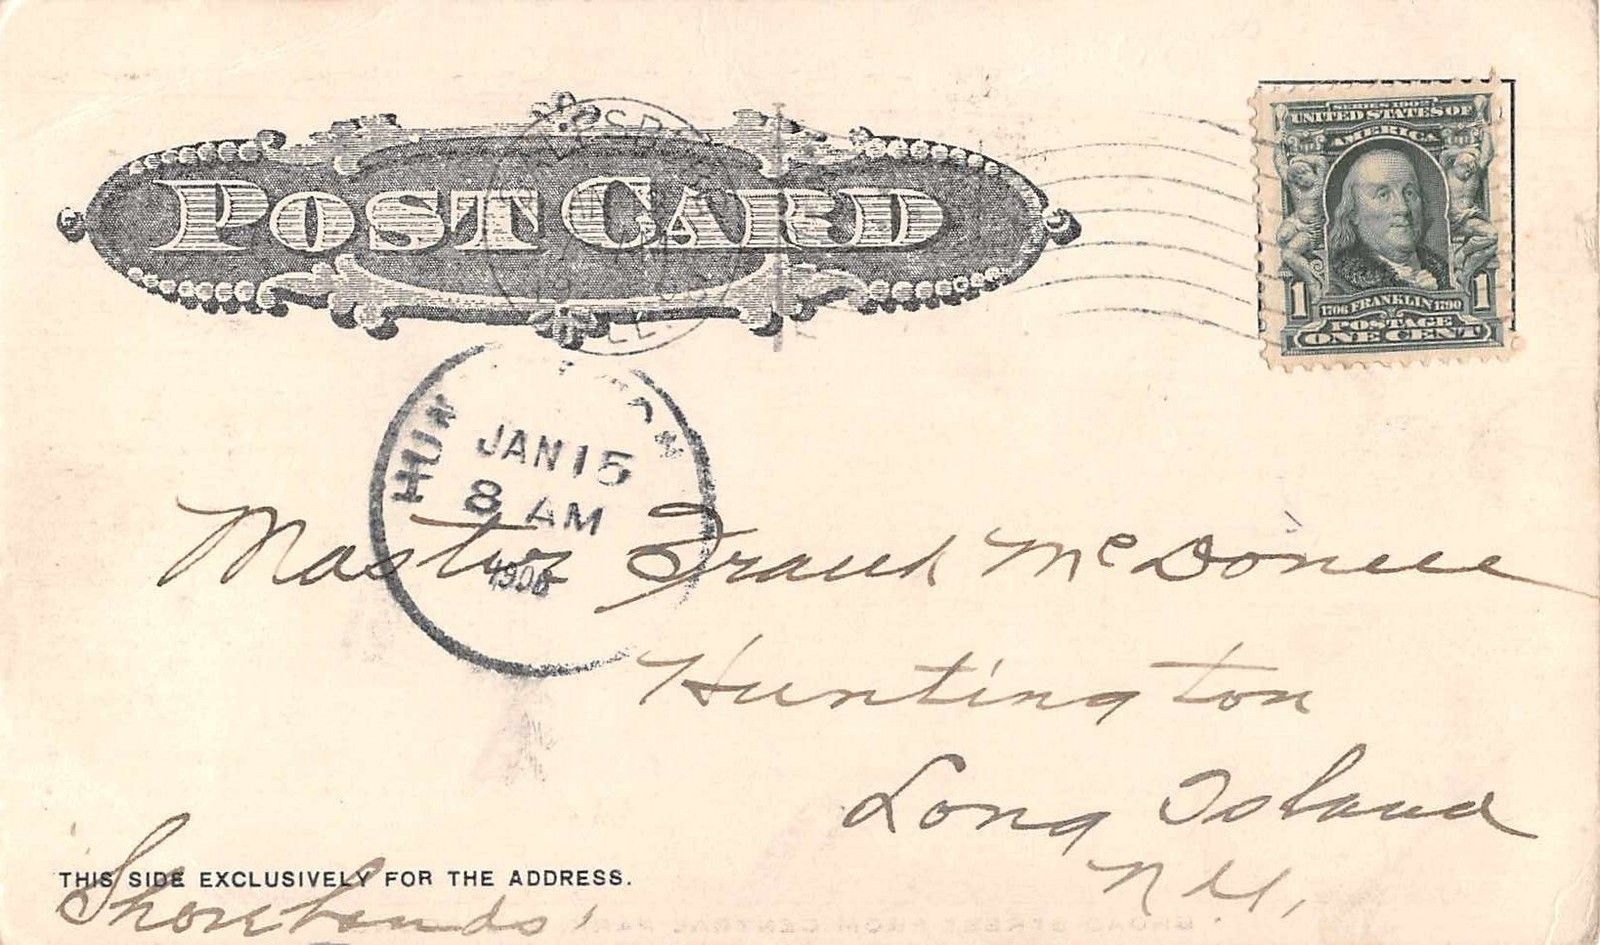 POST CARD
SERIES 1902
UNITED STATES OF
AMERICA
1 1706 FRANKLIN 1790 1
POSTAGE
ONE CENT
JAN 15
8 AM
1906
Master Frank McDonell
Huntington
Long Island
N.Y.,
THIS SIDE EXCLUSIVELY FOR THE ADDRESS.